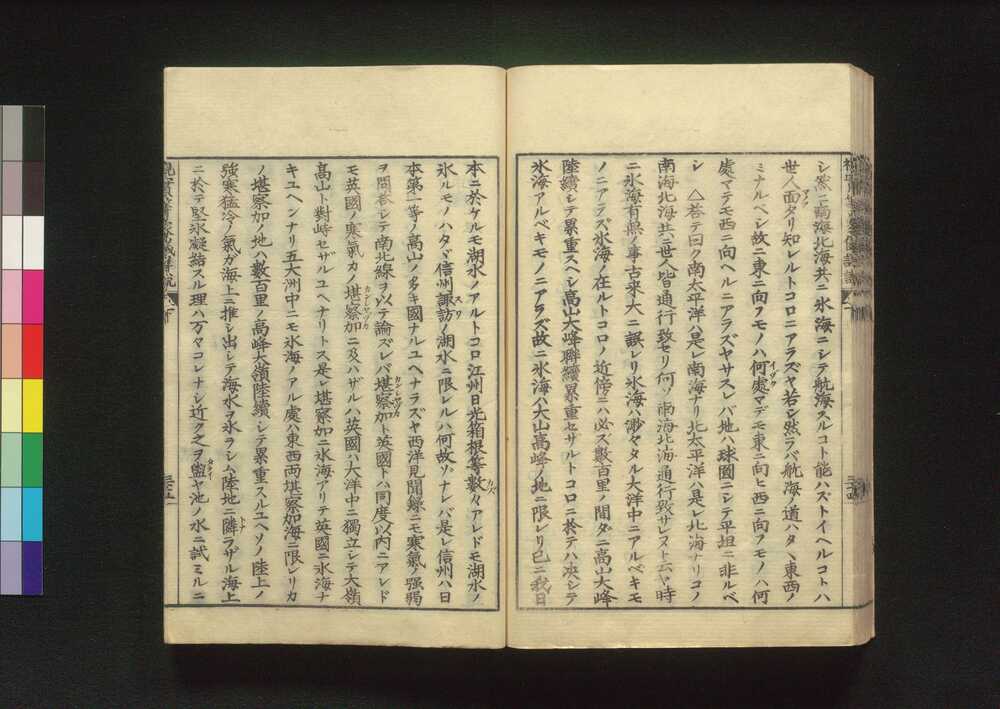 シ然ニ南海北海共ニ氷海ニシテ航海スルコト能ハズトイヘルコトハ
世人面タリ知レルトコロニアラズヤ若シ然ラバ航海ノ道ハタヽ東西ノ
ミナルベシ故ニ東ニ向フモノハ何處マデモ東ニ向ヒ西ニ向フモノハ何
處マテモ西ニ向ヘルニアラズヤサスレバ地ハ球圓ニシテ平坦ニ非ルベ
シ △答テ曰ク南太平洋ハ是レ南海ナリ北太平洋ハ是レ北海ナリコノ
南海北海共ニ世人皆通行致セリ何ソ南海北海通行致サレズト云ヤ時
ニ氷海有無ノ事古来大ニ誤レリ氷海ハ渺々タル大洋中ニアルベキモ
ノニアラズ氷海ノ在ルトコロノ近傍ニハ必ズ數百里ノ間ダニ高山大峰
陸續シテ累重スヘシ高山大峰聯續累重セサルトコロニ於テハ决シテ
氷海アルベキモノニアラズ故ニ氷海ハ大山高峰ノ地ニ限レリ已ニ我日
本ニ於ケルモ湖水ノアルトコロ江州日光箱根等數々アレドモ湖水ノ
氷ルモノハタヾ信州諏訪ノ湖水ニ限レルハ何故ゾナレバ是レ信州ハ日
本第一等ノ高山ノ多キ國ナルユヘナラズヤ西洋見聞録ニモ寒氣ノ强弱
ヲ問答シテ南北線ヲ以テ論ズレバ堪察加ト英國トハ同度以内ニアレド
モ英國ノ寒氣カノ堪察加ニ及ハザルハ英國ハ大洋中ニ獨立シテ大嶺
高山ト對峙セザルユヘナリトス是レ堪察加ニ氷海アリテ英國ニ氷海ナ
キユヘンナリ五大洲中ニモ氷海ノアル處ハ東西両堪察加海ニ限レリカ
ノ堪察加ノ地ハ數百里ノ高峰大嶺陸續シテ累重スルユヘソノ陸上ノ
強寒猛冷ノ氣ガ海上ニ推シ出シテ海水ヲ氷ラシム陸地ニ隣ラザル海上
ニ於テ堅氷凝結スル理ハ万々コレナシ近ク之ヲ盥ヤ池ノ水ニ試ミルニ